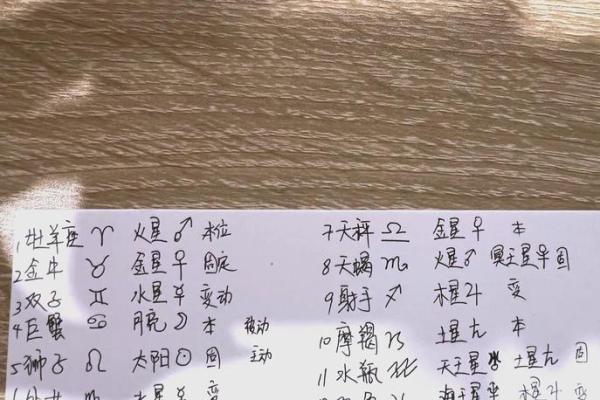 1 牡羊座 ♈ 火星 ♂ 本位
2 金牛 ♉ 金星 ♀ 固定
3 双子 ♊ 水星 ☿ 变动
4 巨蟹 ♋ 月亮 ☽ 本 被动
5 狮子 ♌ 太阳 ☉ 固 主动
♍ 水星 ☿ 变
7 天秤 ♎ 金星 ♀ 本
8 天蝎 ♏ 火星 ♂ 冥王星 固
9 射手 ♐ 木星 ♃ 变
10 摩羯 ♑ 土星 ♄ 本
11 水瓶 ♒ 天王星 ♅ 土星 ♄ 固
海王星 木星 ♃ 变